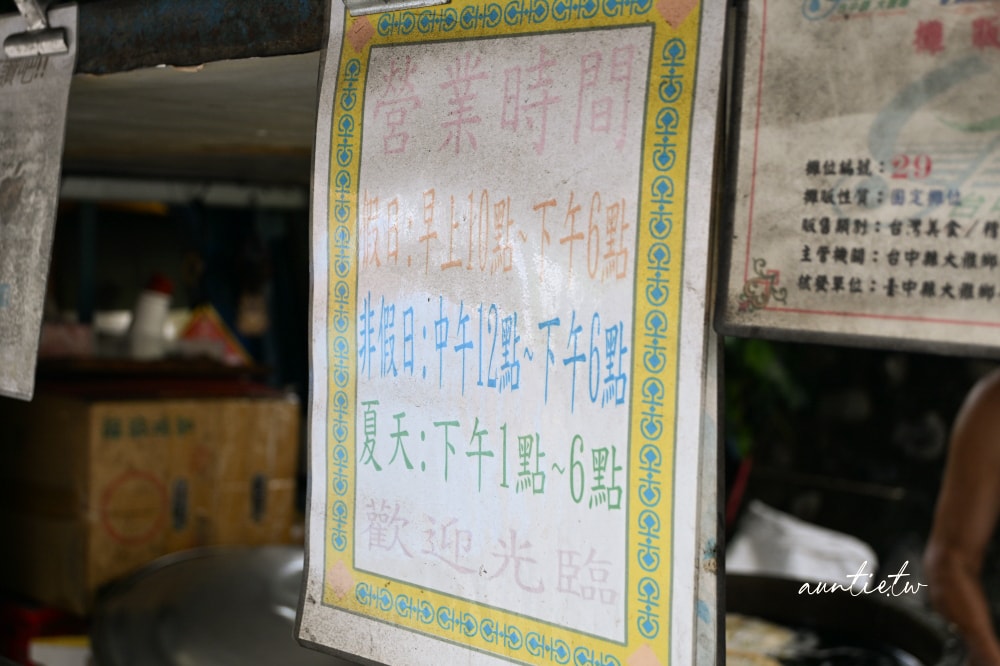 營業時間
假日:早上10點~下午6點
非假日:中午12點~下午6點
夏天:下午1點~6點
歡迎光臨
攤販
攤位編號:29
攤販性質:固定攤位
販售類別:台灣美食/精
主管機關:台中縣大雅鄉
核發單位:臺中縣大雅鄉
auntie.tw